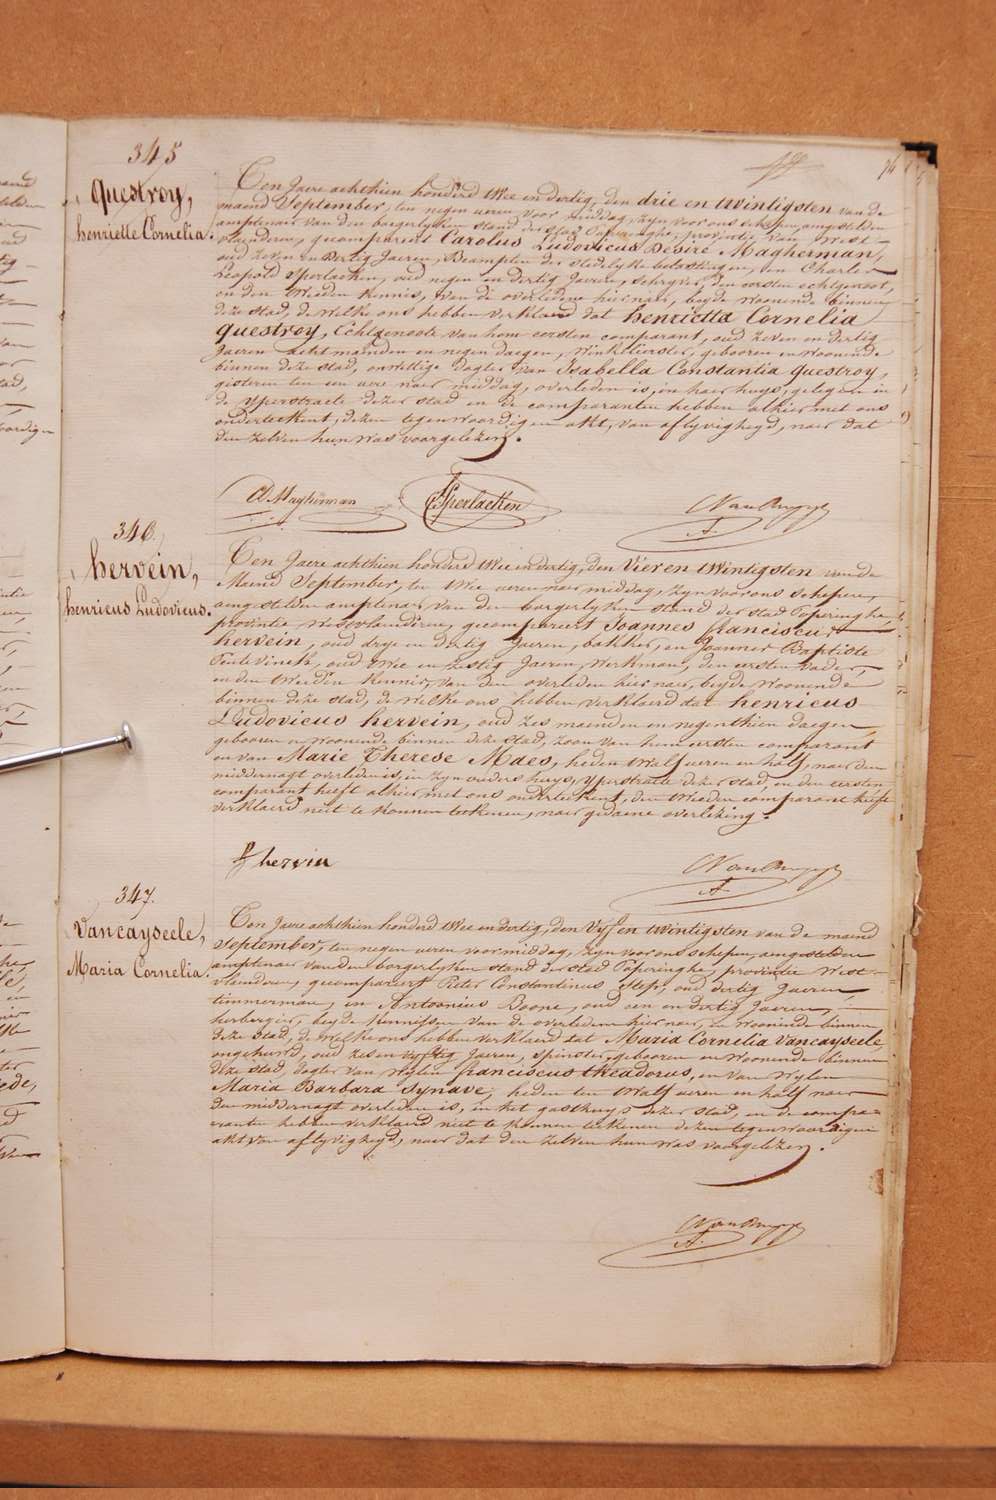 345
Questroy,
henriette Cornelia.
Ten Jaere achthien honderd twee en dertig, den drie en twintigsten van de
maend September, ten negen ueren voor middag, zyn voor ons schepen, amgestelden
amptenaer van den borgerlyken stand der stad Poperinghe, provintie van West-
vlaenderen, gecompareert Carolus Ludovicus Desiré Magherman,
oud zeven en dertig Jaeren, Beampten der stedelyke belastingen, en Charles
Leopold Sperlaeken, oud negen en dertig Jaeren, schryver, den eersten echtgenoot,
en den tweeden kennis, van de overledene hier naer, beyde woonende binnen
deze stad, de welke ons hebben verklaerd dat henrietta Cornelia
questroy, Echtgenoote van hem eersten comparant, oud zeven en dertig
Jaeren acht maenden en negen daegen, winkelierster, gebooren en woonende
binnen deze stad, onwettige dogter van Isabella Constantia questroy,
gisteren ten een uere naer middag, overleden is, in haer huys, gelegen in
de yperstraete dezer stad en de comparanten hebben alhier met ons
onderteekent, dezen tegenwoordigen akt, van aflyvigheyd, naer dat
den zelven hun was voorgelezen.
CD Magherman Sperlaeken
346.
hervein,
henricus Ludovicus.
Ten Jaere achthien honderd twee en dertig, den Vier en twintigsten van de
Maend September, ten twee ueren naer middag, zyn voor ons schepen,
amgestelden amptenaer van den borgerlyken stand der stad Poperinghe,
provintie Westvlaenderen, gecompareert Joannes franciscus
hervein, oud drye en dertig Jaeren, bakker, en Joannes Baptiste
oud twee en zestig Jaeren, Werkman, den eersten vader,
en den tweeden kennis, van den overleden hier naer, beyde woonende
binnen deze stad, de welke ons hebben verklaerd dat henricus
Ludovicus hervein, oud zes maenden en negenthien daegen,
gebooren en woonende binnen deze stad, zoon van hem eersten comparant
en van Marie Therese Maes, heden twalf ueren en half, naer den
middernagt overleden is, in zyn ouders huys, yperstraete dezer stad, en den eersten
comparant heeft alhier met ons onderteekent, den tweeden comparant heeft
verklaerd niet te konnen teekenen, naer gedaene overlezing.
hervin
347.
Vancayseele,
Maria Cornelia.
Ten Jaere achthien honderd twee en dertig, den Vyf en twintigsten van de maend
September, ten negen ueren voormiddag, zyn voor ons schepen, amgestelden
amptenaer van den borgerlyken stand der stad Poperinghe, provintie West-
vlaenderen, gecompareert Pieter Constantinus oud dertig Jaeren,
timmerman, en Antoonius Boone, oud een en dertig Jaeren,
herbergier, beyde kennissen van de overledene hier naer, en woonende binnen
deze stad, de welke ons hebben verklaerd dat Maria Cornelia Vancayseele,
ongehuwd, oud zes en vyftig Jaeren, spinster, gebooren en woonende binnen
deze stad, dogter van wylen franciscus theodorus, en van wylen
Maria Barbara Synave, heden ten twalf ueren en half naer
den middernagt overleden is, in het gasthuys dezer stad, en de compa=
ranten hebben verklaerd niet te konnen teekenen dezen tegenwoordigen
akt van aflyvigheyd, naer dat den zelven hun was voorgelezen.